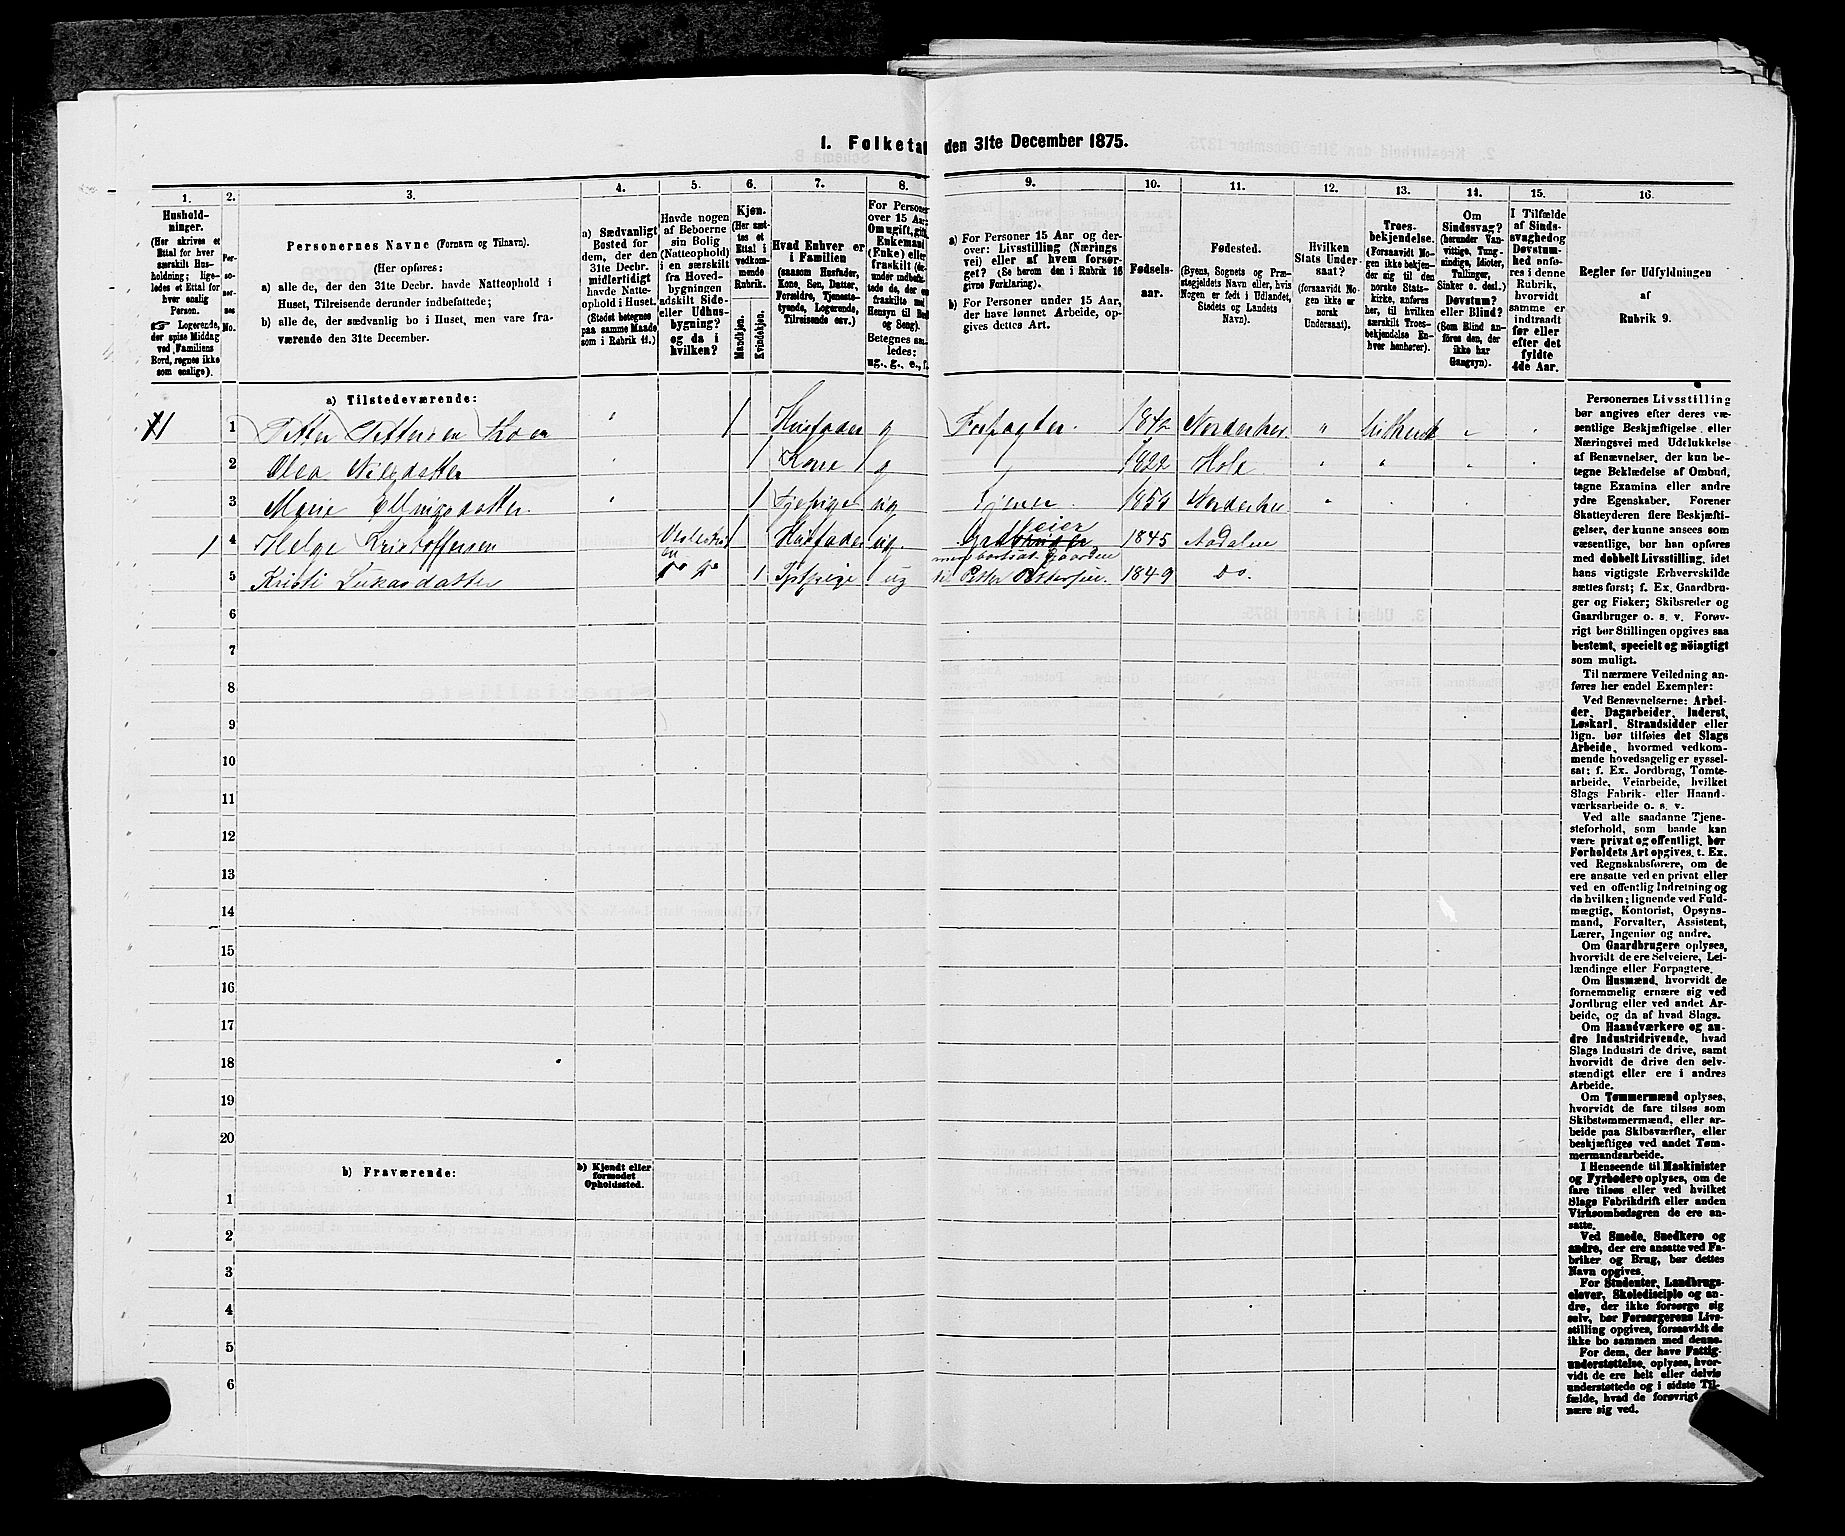 1. Folketal den 31te December 1875.
1.
Hushold-
ninger.
(Her skrives et
Ettal for hver
særskilt Hus-
holdning; lige-
ledes et Ettal for
hver enslig
Person.
Logerende,
der spise Middag
ved Familiens
Bord, regnes ikke
som enslige).
2.
Per-
so-
ner-
nes
No.
3.
Personernes Navne (Fornavn og Tilnavn).
(Her opføres:
a) alle de, der den 31te Decbr. havde Natteophold i
Huset, Tilreisende derunder indbefattede;
b) alle de, der sædvanlig bo i Huset, men vare fra-
værende den 31te December.
4.
a) Sædvanligt
Bosted for
dem, der den
31te Decbr.
midlertidigt
havde Natte-
ophold i Huset.
(Stedet betegnes
paa samme Maade
som i Rubrik 11.)
5.
Havde nogen
af Beboerne
sin Bolig
(Natteophold)
i en særskilt
fra Hoved-
bygningen
adskilt Side-
eller Udhus-
bygning?
og da i
hvilken?
6.
Kjøn.
(Her sæt-
tes et
Ettal i
vedkom-
mende
Rubrik.)
Mandkjøn.
Kvindekjøn.
7.
Hvad Enhver er
i Familien
(saasom Husfader,
Kone, Søn, Datter,
Forældre, Tjeneste-
tyende, Logerende,
Tilreisende osv.)
8.
For Personer
over 15 Aar:
Om ugift, gift,
Enkemand
(Enke) eller
fraskilt
Betegnes saa-
ledes:
ug., g., e., f.
9.
a) For Personer 15 Aar og der-
over: Livsstilling (Nærings
vei) eller af hvem forsør-
get? (Se herom den i Rubrik 16
givne Forklaring).
b) For Personer under 15 Aar,
der have lønnet Arbeide, op-
gives dettes Art.
10.
Fødsels-
aar.
11.
Fødested.
(Byens, Sognets og Præ-
stegjeldets Navn eller, hvis
Nogen er født i Udlandet,
Stedets og Landets
Navn).
12.
Hvilken
Stats Under-
saat?
(forsaavidt No-
gen ikke er
norsk
Undersaat).
13.
Troes-
bekjendelse.
(Forsaavidt No-
gen ikke bekjen-
der sig til den
norske Stats-
kirke, anføres
her, til hvilken
særskilt Troes-
bekjendelse En-
hver henhører).
14.
Om
Sindssvag?
(herunder Van-
vittige, Tung-
sindige, Idioter,
Tullinger,
Sinker o. desl.)
Døvstum?
eller Blind?
(Som Blind an-
føres den, der
ikke har
Gangsyn).
15.
I Tilfælde
af Sinds-
svaghed og
Døvstum-
hed anfø-
res i denne
Rubrik,
hvorvidt
samme er
indtraadt
før eller
efter det
fyldte
4de Aar.
16.
Regler for Udfyldningen
af
Rubrik 9.
a) Tilstedeværende:
1 Petter Pettersen 1 Husfader g Forpagter 1842 Norderhov
2 Olea Nilsdatter 1 Kone g 1822 Hole
3 Marie Ellingsdatter 1 Tjepige ug Tjener Norderhov
1 4 Helge Kristoffersen 1 Husfader ug. 1845 Aadalen
5 Kristi Lukasdatter Do Do 1 ug Petter Pettersen. 1849 Do.
6
7
8
9
10
11
12
13
14
15
16
17
18
19
20
b) Fraværende:
b) Kjendt eller
formodet
Opholdssted.
1
2
3
4
5
6
Personernes Livsstilling
bør angives efter deres væ-
sentlige Beskjæftigelse eller
Næringsvei med Udelukkelse
af Benævnelser, der kun be-
tegne Beklædelse af Ombud,
tagne Examina eller andre
ydre Egenskaber. Forener
Skatteyderen flere Beskjæfti-
gelser, der kunne ansees som
væsentlige, bør han opføres
med dobbelt Livsstilling, idet
hans vigtigste Erhvervskilde
sættes først; f. Ex. Gaardbru-
ger og Fisker; Skibsreder og
Gaardbruger o. s. v. Forøv-
rigt bør Stillingen opgives saa
bestemt, specielt og nöiagtigt
som muligt.
Til nærmere Veiledning an-
føres her endel Exempler:
Ved Benævnelserne: Arbei-
der, Dagarbeider, Inderst,
Løskarl, Strandsidder eller
lign. bør tilføies det Slags
Arbeide, hvormed vedkom-
mende hovedsagelig er syssel-
sat; f. Ex. Jordbrug, Tomte-
arbeide, Veiarbeide, hvilket
Slags Fabrik- eller Haand-
værksarbeide o. s. v.
Ved alle saadanne Tjene-
steforhold, som baade kan
være privat og offentligt, bør
Forholdets Art opgives, t. Ex.
ved Regnskabsførere, om de
ere ansatte ved en privat eller
ved en offentlig Indretning og
da hvilken; lignende ved Fuld-
mægtig, Kontorist, Opsyns-
mand, Forvalter, Assistent,
Lærer, Ingeniør og andre.
Om Gaardbrugere oplyses,
hvorvidt de ere Selveiere, Lei-
lændinge eller Forpagtere.
Om Husmænd, hvorvidt de
fornemmelig ernære sig ved
Jordbrug eller ved andet Ar-
beide, og da af hvad Slags.
Om Haandværkere og an-
dre Industridrivende, hvad
Slags Industri de drive, samt
hvorvidt de drive den selv-
stændigt eller ere i andres
Arbeide.
Om Tømmermænd oplyses,
hvorvidt de fare tilsøs som
Skibstømmermænd, eller ar-
beide paa Skibsværfter, eller
beskjæftiges ved andet Tøm-
mermandsarbeide.
I Henseende til Maskinister
og Fyrbødere oplyses, om de
fare tilsøs eller ved hvilket
Slags Fabrikdrift eller anden
Virksombedsgren de ere an-
satte.
Ved Smede, Snedkere og
andre, der ere ansatte ved Fa-
briker og Brug, bør dettes
Navn opgives.
For Studenter, Landbrugs-
elever, Skoledisciple og an-
dre, der ikke forsørge sig
selv, bør Forsørgerens Livs-
stilling opgives, forsaavidt de
ikke bo sammen med denne.
For dem, der have Fattig-
understøttelse, oplyses, hvor-
vidt de ere helt eller delvis
understøttede og i sidste Til-
fælde, hvad de forøvrigt
nære sig ved.